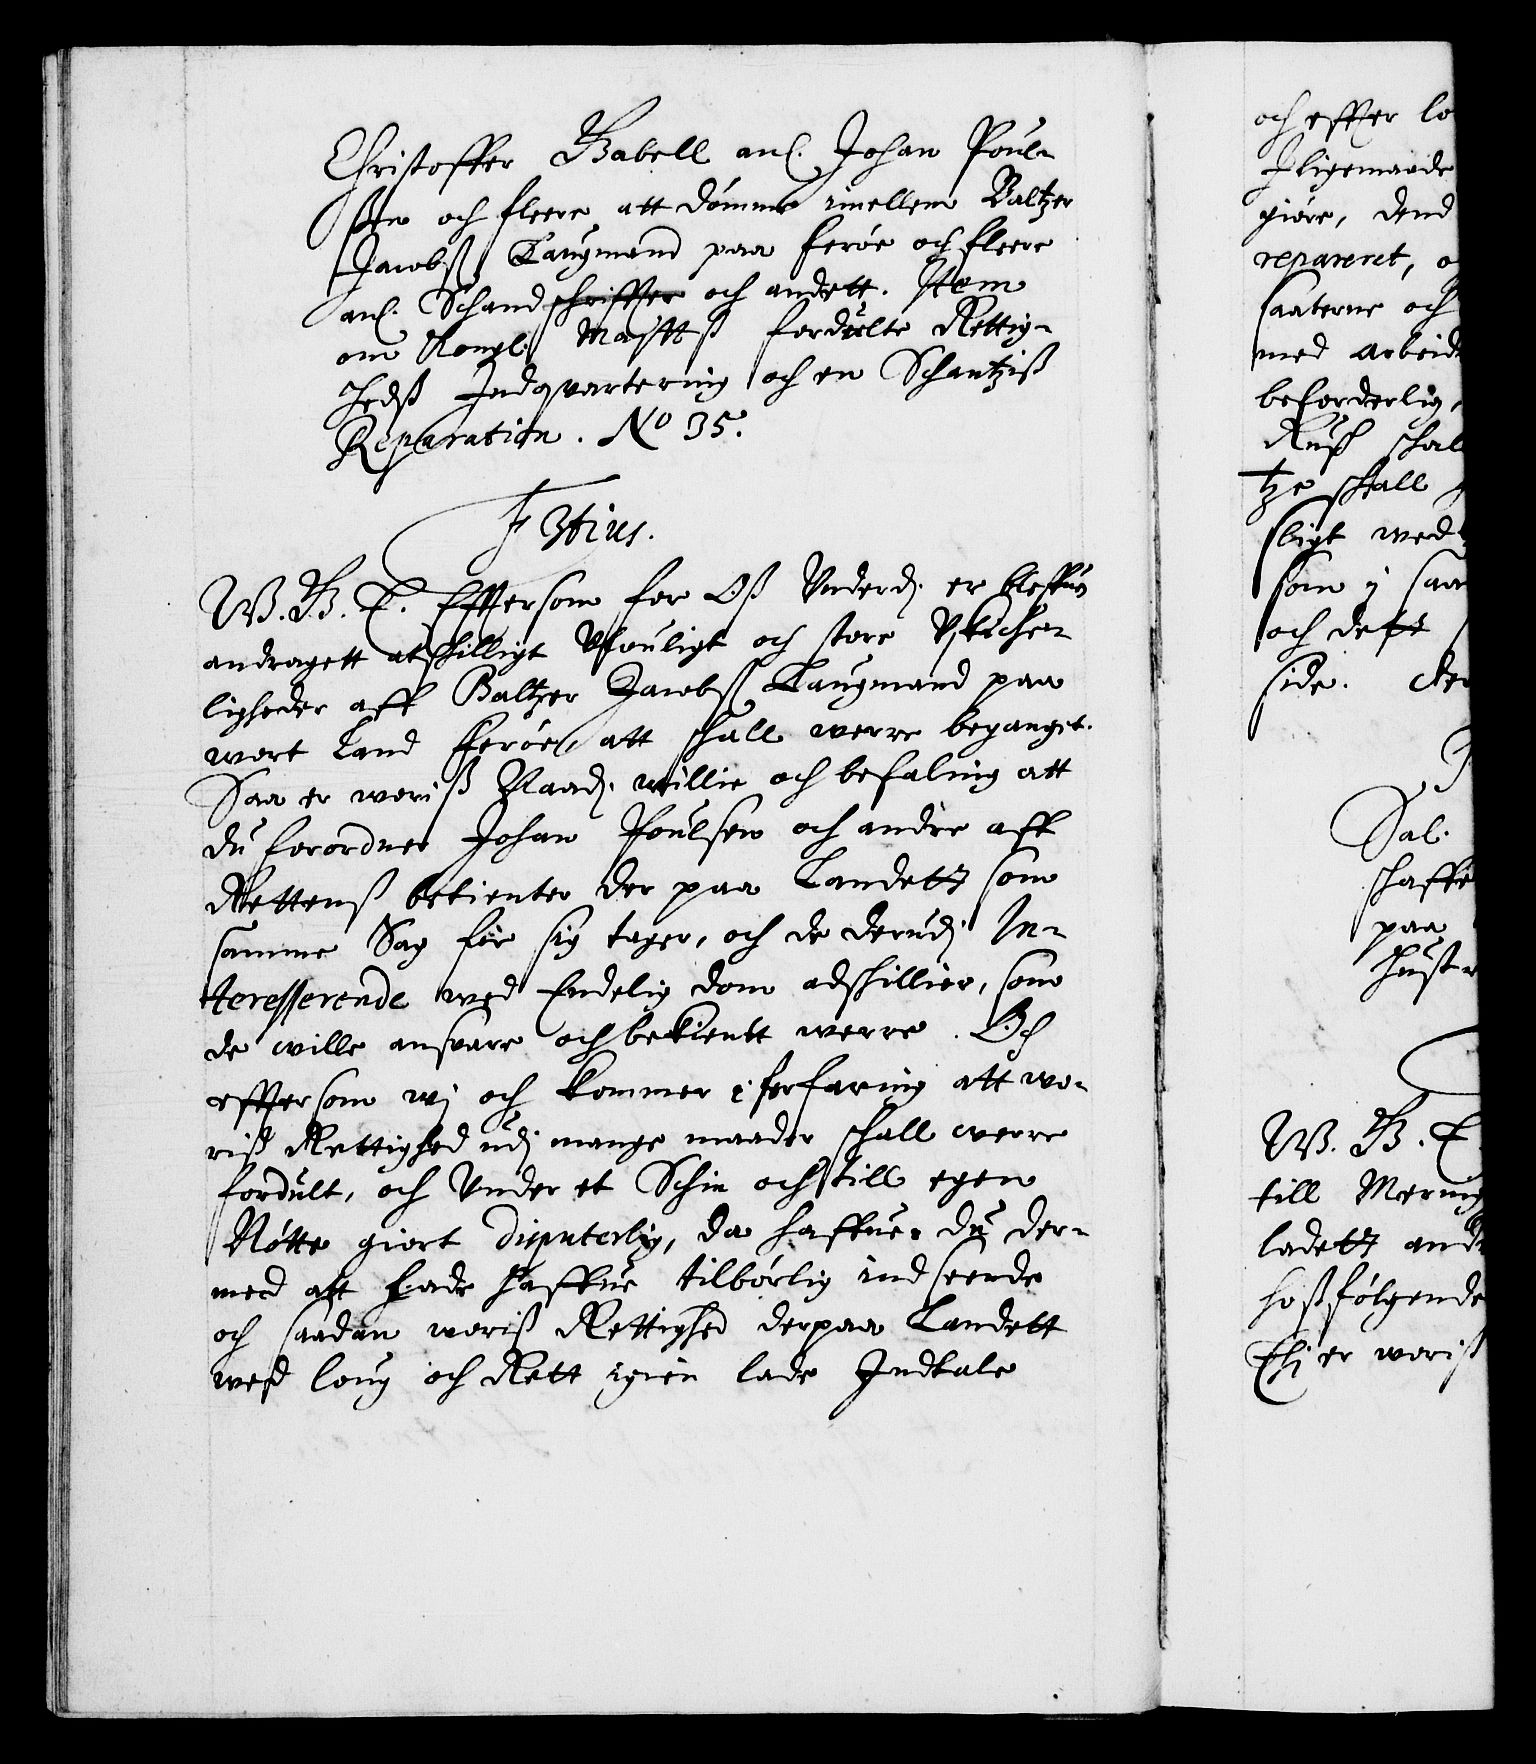 Christoffer Gabell anl. Johan Poul-
ßen och fleere att dømme imellem Baltzer
Jacobß. Laugmand paa Ferøe och fleere
anl. Schandschriffter och andett. Item
om Kongl. Maÿttß fordulte Rettig-
hedß Indqvartering och en Schantziß
Reparation. No 35.
F 3tius.
W. G. T. Efftersom for Oß Underd. er bleffuen
andragett atskilligt Ulouligt och store Uskicke-
ligheder aff Baltzer Jacobß Laugmand paa
wort Land Ferøe, att skall werre begangit.
Saa er woriß Naad. willie och befaling att
du forordner Johan Poulsen och andre aff
Rettenß betienter der paa Landett som
samme Sag for sig tager, och de derudj In-
teresserende wed Endelig dom adskillier, som
de wille ansvare och bekientt werre. Och
efftersom wj och kommer i forfaring att wo-
riß Rettighed udj mange maader skall werre
fordult, och Under et Schin och till egen
Nøtte giort disputerlig, da haffuer du der-
med att hafue tilbørlig indseende
och saadan woriß Rettighed derpaa Landett
wed loug och Rett igien lade Indtale
och effter lo
Iligemaade
giøre, dend
repareret, o
saaterne och
med Arbeid
beforderlig,
Ruß skal
tze skall
sligt wed
som j saa
och de
side.
Sal.
skaffe
paa
Hustr
W. G. T
till Mering
ladett and
hoßfølgende
Thj er woriß